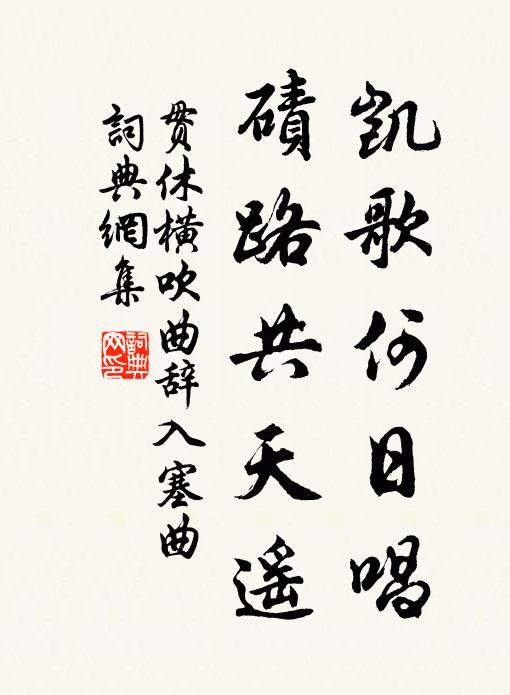 凯歌何日唱
碛路共天遥
贯休横吹曲辞入塞曲
詞典網集
詞典网印